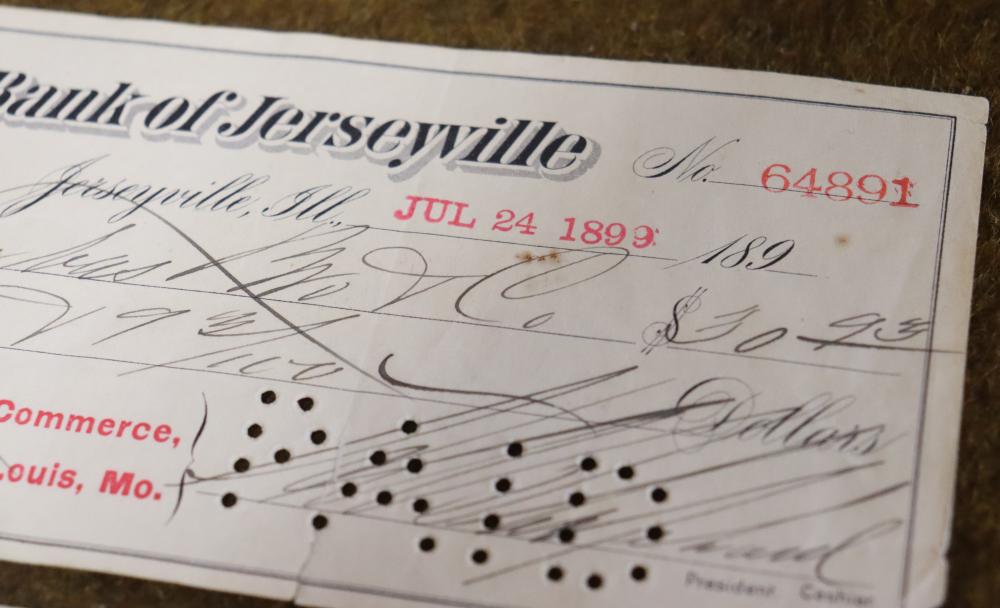 Bank of Jerseyville
No. 64891
Jerseyville, Ill., JUL 24 1899 189
Bro & Co. $30 93
93/100
Dollars
Commerce,
Louis, Mo.
President Cashier